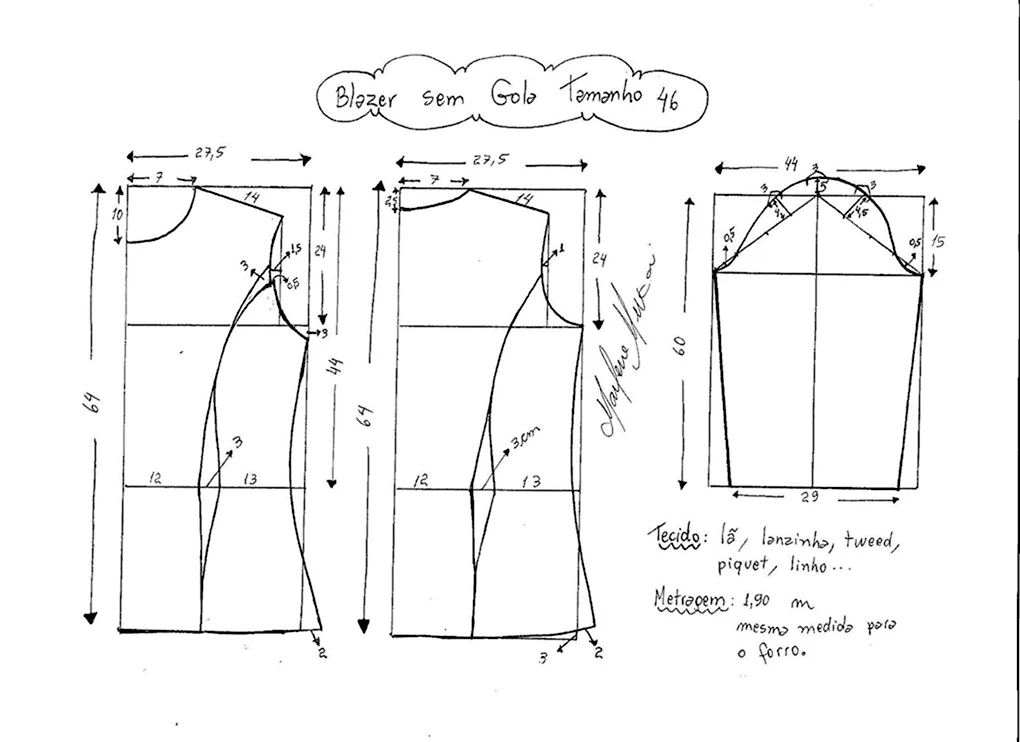 Blazer sem Gola Tamanho 46
27,5
7
14
10
1,5
3
0,5
24
3
44
64
3
12
13
2
27,5
7
14
2,5
1
24
64
3cm
12
13
3
2
Marlene Mukai
44
3
3
5
3
4,5
0,5
0,5
15
60
29
Tecido: lã, lanzinha, tweed,
piquet, linho...
Metragem: 1,90 m
mesma medida para
o forro.